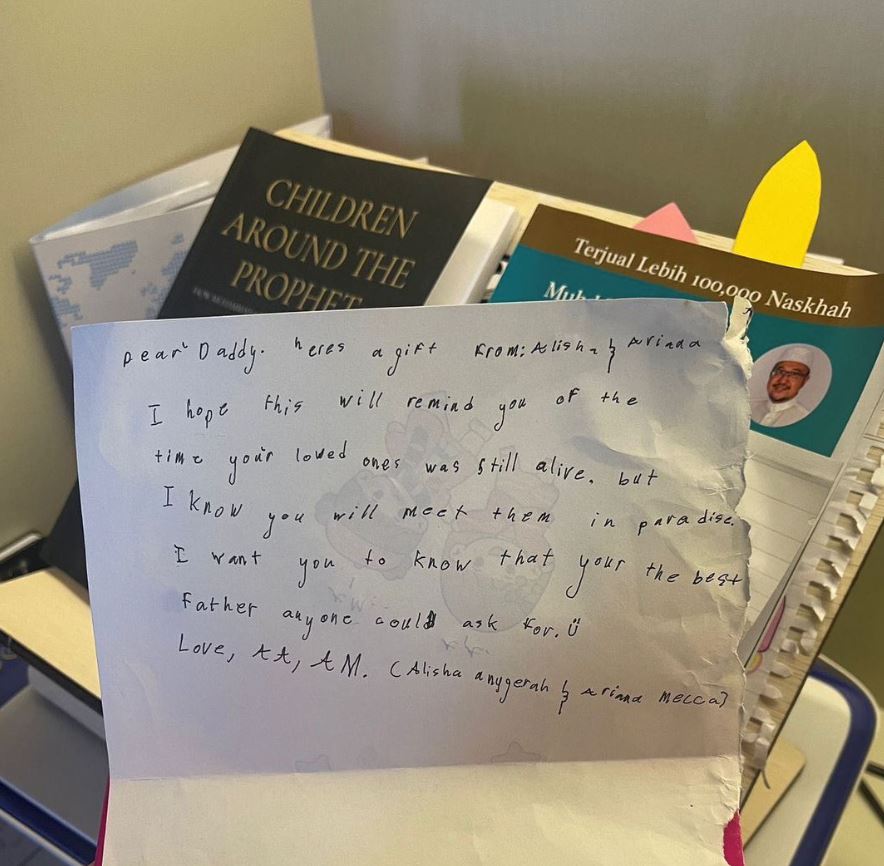 CHILDREN
AROUND THE
PROPHET
Terjual Lebih 100,000 Naskhah
Dear Daddy. heres a gift From: Alisha & Ariana
I hope this will remind you of the
time your loved ones was still alive. but
I know you will meet them in paradise.
I want you to know that your the best
Father anyone could ask for. Ü
Love, AA, AM. (Alisha anygerah & Ariana Mecca)